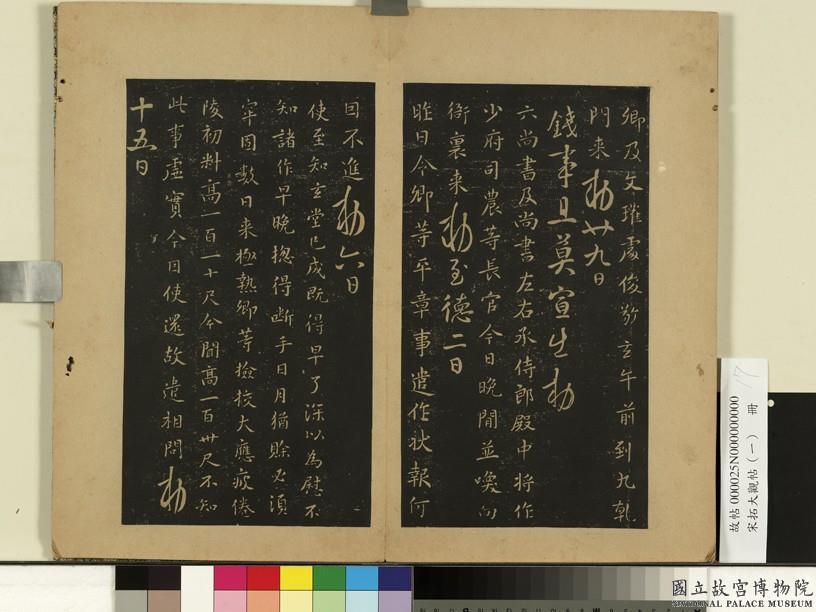 卿及文瓘處俊敬玄午前到九乹
門来勅廿九日
錢事且莫宣出勅
六尚書及尚書左右丞侍郎殿中将作
少府司農等長官今日晩間並喚向
衙裏来勅至德二日
昨日令卿等平章事遣作狀報何
因不進勅六日
使至知玄堂已成既得早了深以為慰不
知諸作早晚揔得断手日月猶賒必須
牢固數日来極熱卿等撿校大應疲倦
陵初料高一百一十尺今聞高一百卅尺不知
此事虛實今日使還故遣相問勅
十五日
故帖 000025N000000000
宋拓大觀帖（一） 冊
17
國立故宮博物院
NATIONAL PALACE MUSEUM